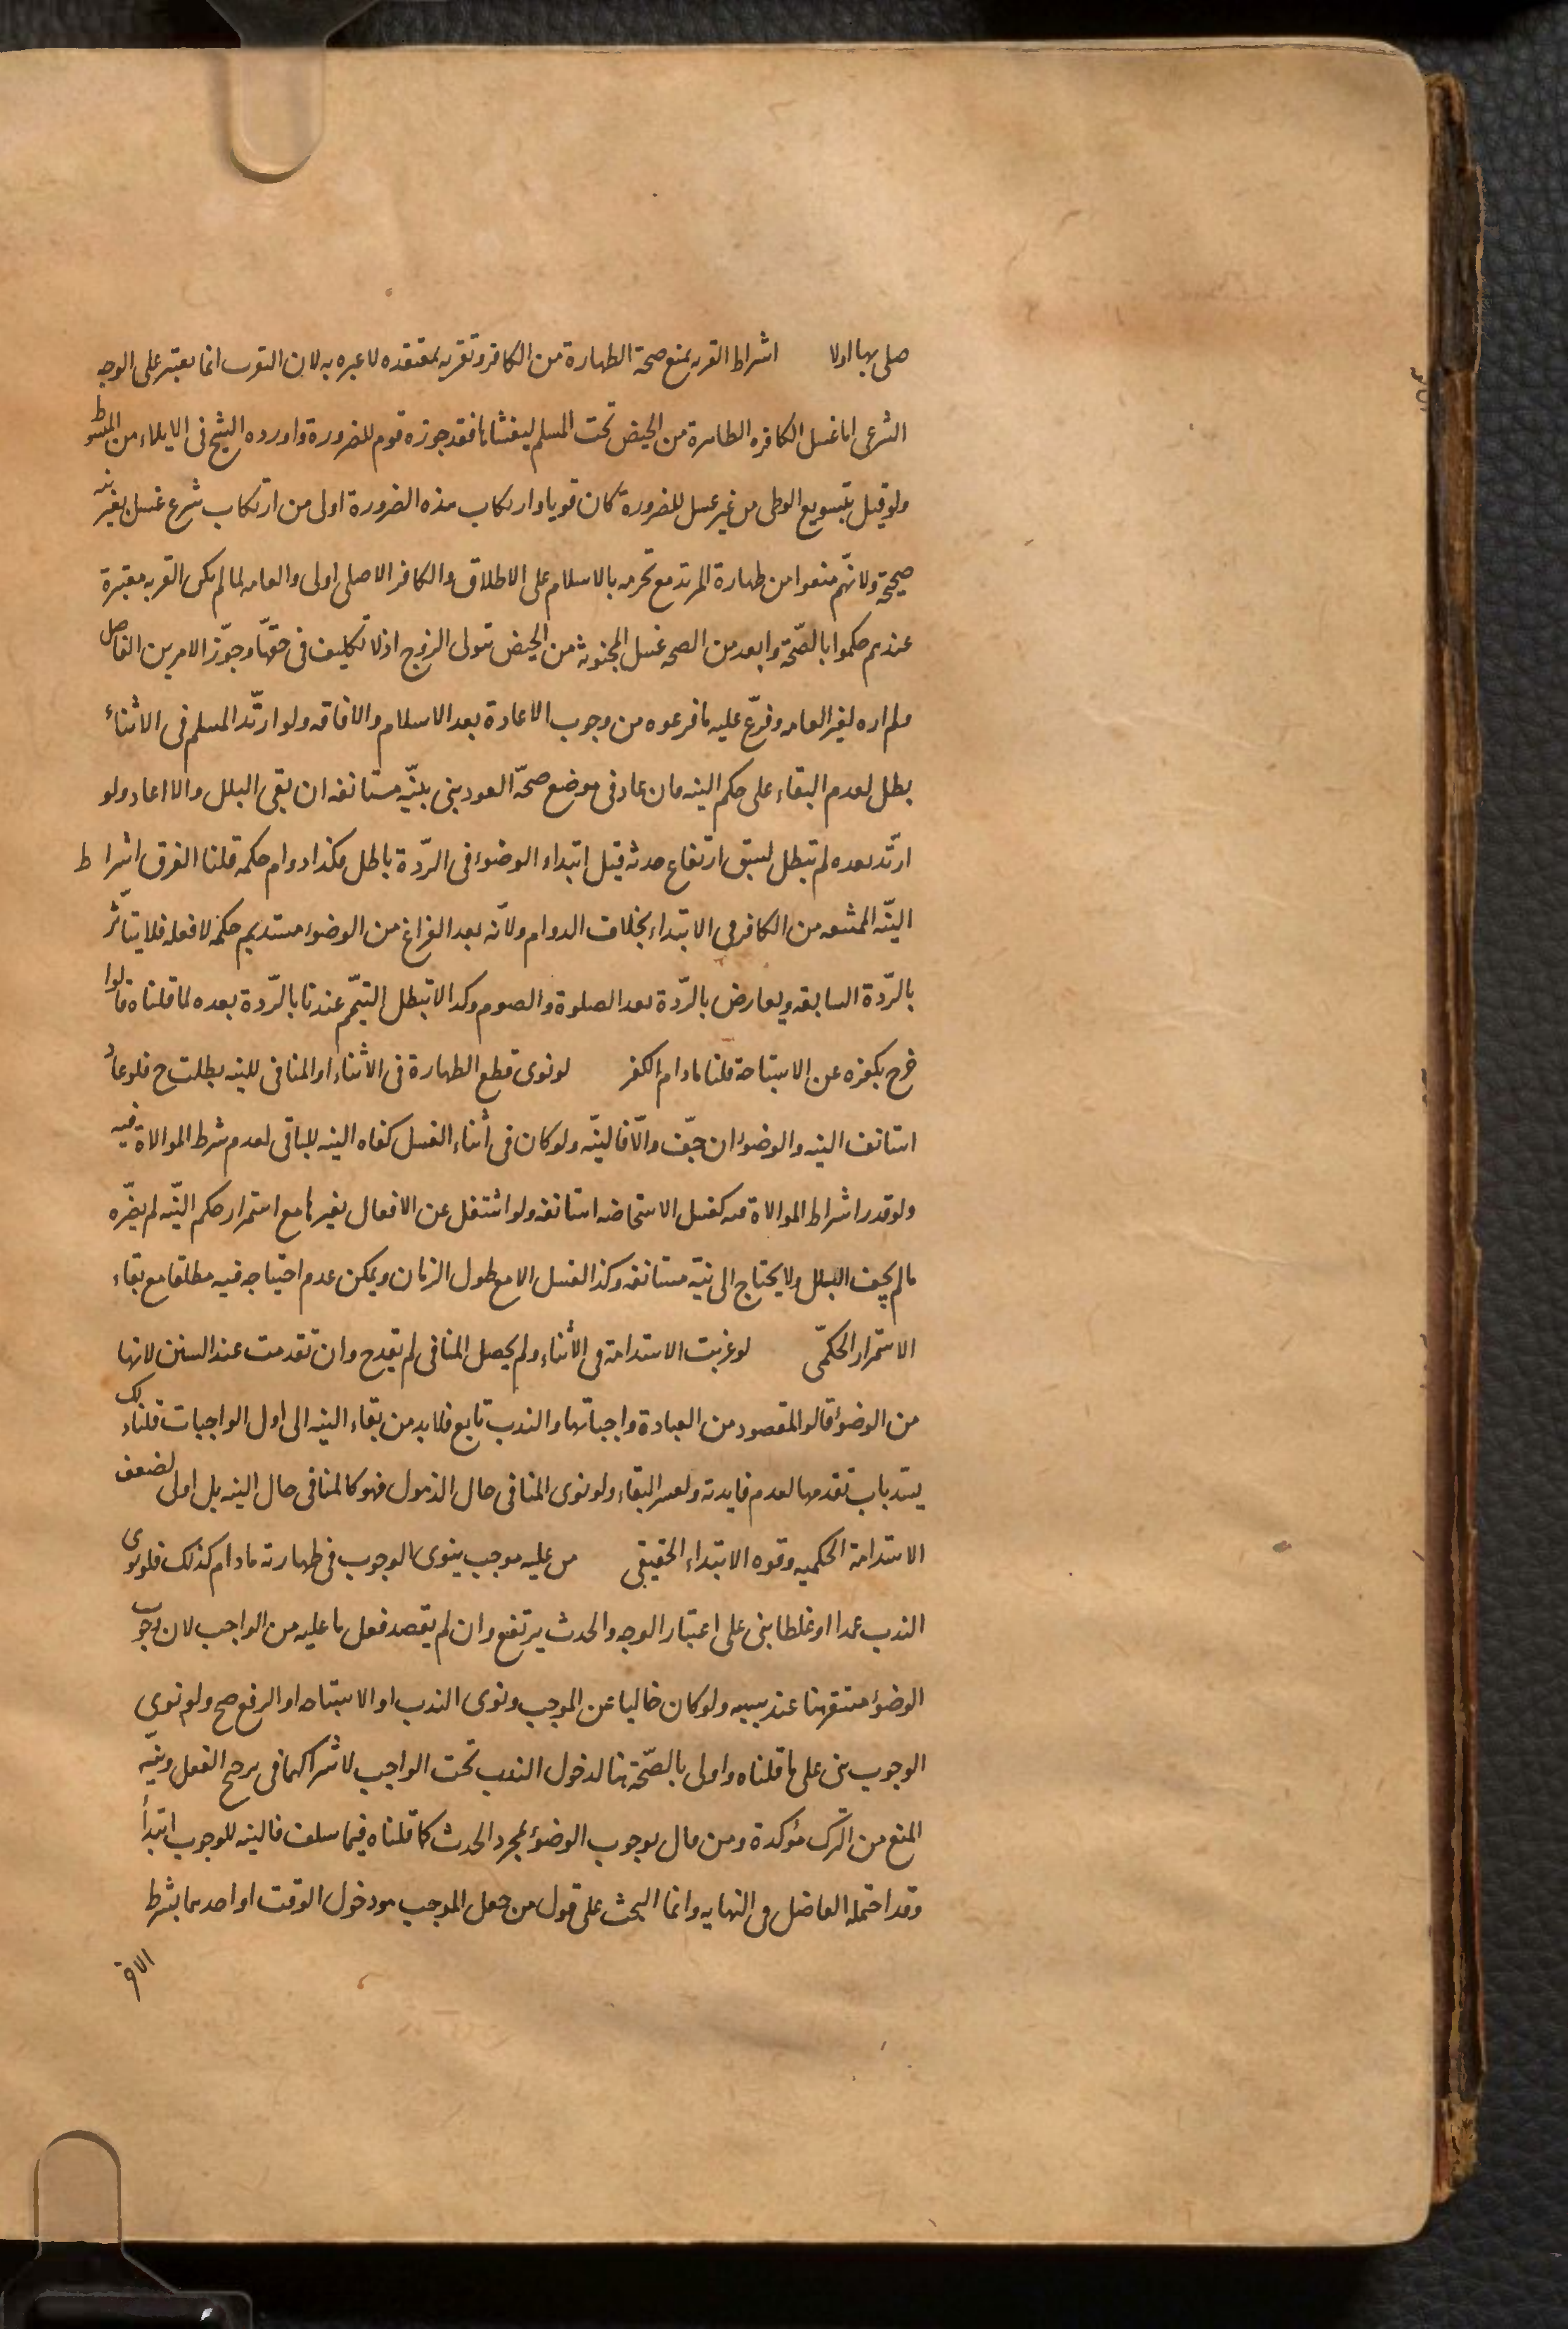 صلى بها اولا اشراط القربه يمنع صحة الطهارة من الكافر وتقربه بمعتقده لا عبره به لان التقرب انما يعتبر على الوجه
الشرعى اما غسل الكافره الطاهرة من الحيض تحت المسلم ليغشاها فقد جوزه قوم للضرورة واورده الشيخ فى الايلاء من المبسوط
ولو قيل بتسويع الوطى من غير غسل للضرورة كان قويا وارتكاب هذه الضرورة اولى من ارتكاب شرع غسل بغير نيه
صحيحة ولانهم منعوا من طهارة المرتد مع تحرمه بالاسلام على الاطلاق والكافر الاصلى اولى والعامه لما لم يكن القربه معتبرة
عندهم حكموا بالصّحة وابعد من الصحه غسل المجنونه من الحيض بتولى الزوج اذ لا تكليف فى حقهّا وجوّز الامرين الفاضل
ولم اره لغير العامه وفرّع عليه ما فرعوه من وجوب الاعادة بعد الاسلام والافاقه ولو ارتّد المسلم فى الاثناء
بطل لعدم البقاء على حكم النيه فان عاد فى موضع صحّة العود بنى بنيّه مستانفه ان بقى البلل والا اعاد ولو
ارتّد بعده لم تبطل لسبق ارتفاع حدثه قيل ابتداء الوضوء فى الرّدة باطل فكذا دوام حكمه قلنا الفرق اشراط
النيّه الممتنعه من الكافر فى الابتداء بخلاف الدوام ولانّه بعد الفراغ من الوضوء مستديم حكمه لا فعله فلا يتأثر
بالرّدة السابقه ويعارض بالرّدة بعد الصلوة والصوم وكذا لا تبطل التيمّم عندنا بالرّدة بعده لما قلناه قالوا
خرج بكفره عن الاستباحة قلنا مادام الكفر لو نوى قطع الطهارة فى الأثناء او المنافى للنيه بطلت ح فلو عاد
استانف النيه والوضوء ان جفّ والّا فالنيّه ولو كان فى أثناء الغسل كفاه النيه للباقى لعدم شرط الموالاة فيه
ولو قدر اشراط الموالاة فيه كغسل الاستحاضه استانفه ولو اشتغل عن الافعال بغيرها مع استمرار حكم النيّه لم يضرّه
مالم يجف البلل ولا يحتاج الى نيّه مستانفه وكذا الغسل الا مع طول الزمان ويمكن عدم احتياجه فيه مطلقا مع بقاء
الاستمرار الحكمّى لو عزبت الاستدامة فى الأثناء ولم يحصل المنافى لم يقدح وان تقدمت عند السنن لانها
من الوضوء قالوا المقصود من العبادة واجباتها والندب تابع فلا بد من بقاء النيه الى اول الواجبات قلنا ذلك
يسّد باب تقدمها لعدم فايدته ولعسر البقاء ولو نوى المنافى حال الذهول فهو كالمنافى حال النيه بل اولى لضعف
الاستدامة الحكميه وقوه الابتداء الحقيقى من عليه موجب ينوى الوجوب فى طهارته مادام كذلك فلو نوى
الندب عمدا او غلطا بنى على اعتبار الوجه والحدث يرتفع وان لم يقصد فعل ما عليه من الواجب لان وجوب
الوضوء مستقر هنا عند سببه ولو كان خاليا عن الموجب ونوى الندب او الاستباحه او الرفع صح ولو نوى
الوجوب بنى على ما قلناه واولى بالصّحة هنا لدخول الندب تحت الواجب لاشراكهما فى ترجيح الفعل ونيّه
المنع من الترك مؤكدة ومن قال بوجوب الوضوء لمجرد الحدث كما قلناه فيما سلف فالنيه للوجوب ابتدأ
وقد احتمله الفاضل فى النهايه وانما البحث على قول من جعل الموجب هو دخول الوقت او احدهما بشرط